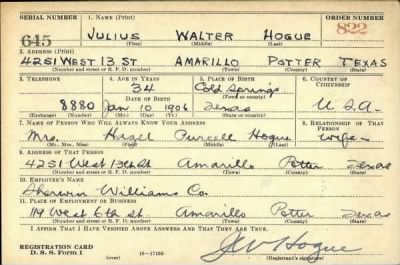 SERIAL NUMBER 1. NAME (Print) ORDER NUMBER
645 JULIUS WALTER HOGUE 822
(First) (Middle) (Last)
2. ADDRESS (Print)
4251 WEST 13 ST AMARILLO POTTER TEXAS
(Number and street or R. F. D. number) (Town) (County) (State)
3. TELEPHONE 4. AGE IN YEARS 5. PLACE OF BIRTH 6. COUNTRY OF CITIZENSHIP
34 Cold Springs
DATE OF BIRTH (Town or county)
8880 Jan 10 1906 Texas U.S.A.
(Exchange) (Number) (Mo.) (Day) (Yr.) (State or country)
7. NAME OF PERSON WHO WILL ALWAYS KNOW YOUR ADDRESS 8. RELATIONSHIP OF THAT PERSON
Mrs. Hazel Purcell Hogue Wife
(Mr., Mrs., Miss) (First) (Middle) (Last)
9. ADDRESS OF THAT PERSON
4251 West 13th St Amarillo Potter Texas
(Number and street or R. F. D. number) (Town) (County) (State)
10. EMPLOYER'S NAME
Sherwin Williams Co.
11. PLACE OF EMPLOYMENT OR BUSINESS
119 West 6th St. Amarillo Potter Texas
(Number and street or R. F. D. number) (Town) (County) (State)
I AFFIRM THAT I HAVE VERIFIED ABOVE ANSWERS AND THAT THEY ARE TRUE.
REGISTRATION CARD
D. S. S. Form 1 (over) 16-17105 J W Hogue
(Registrant's signature)